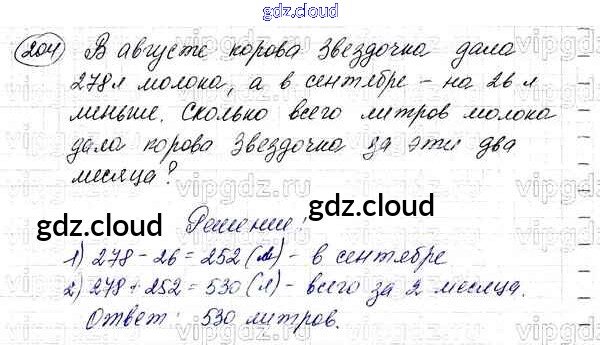 gdz.cloud
204 В августе корова Звездочка дала
278 л молока, а в сентябре - на 26 л
меньше. Сколько всего литров молока
дала корова Звездочка за эти два
месяца?
gdz.cloud gdz.cloud
Решение:
1) 278 - 26 = 252 (л) - в сентябре
2) 278 + 252 = 530 (л) - всего за 2 месяца.
Ответ: 530 литров.